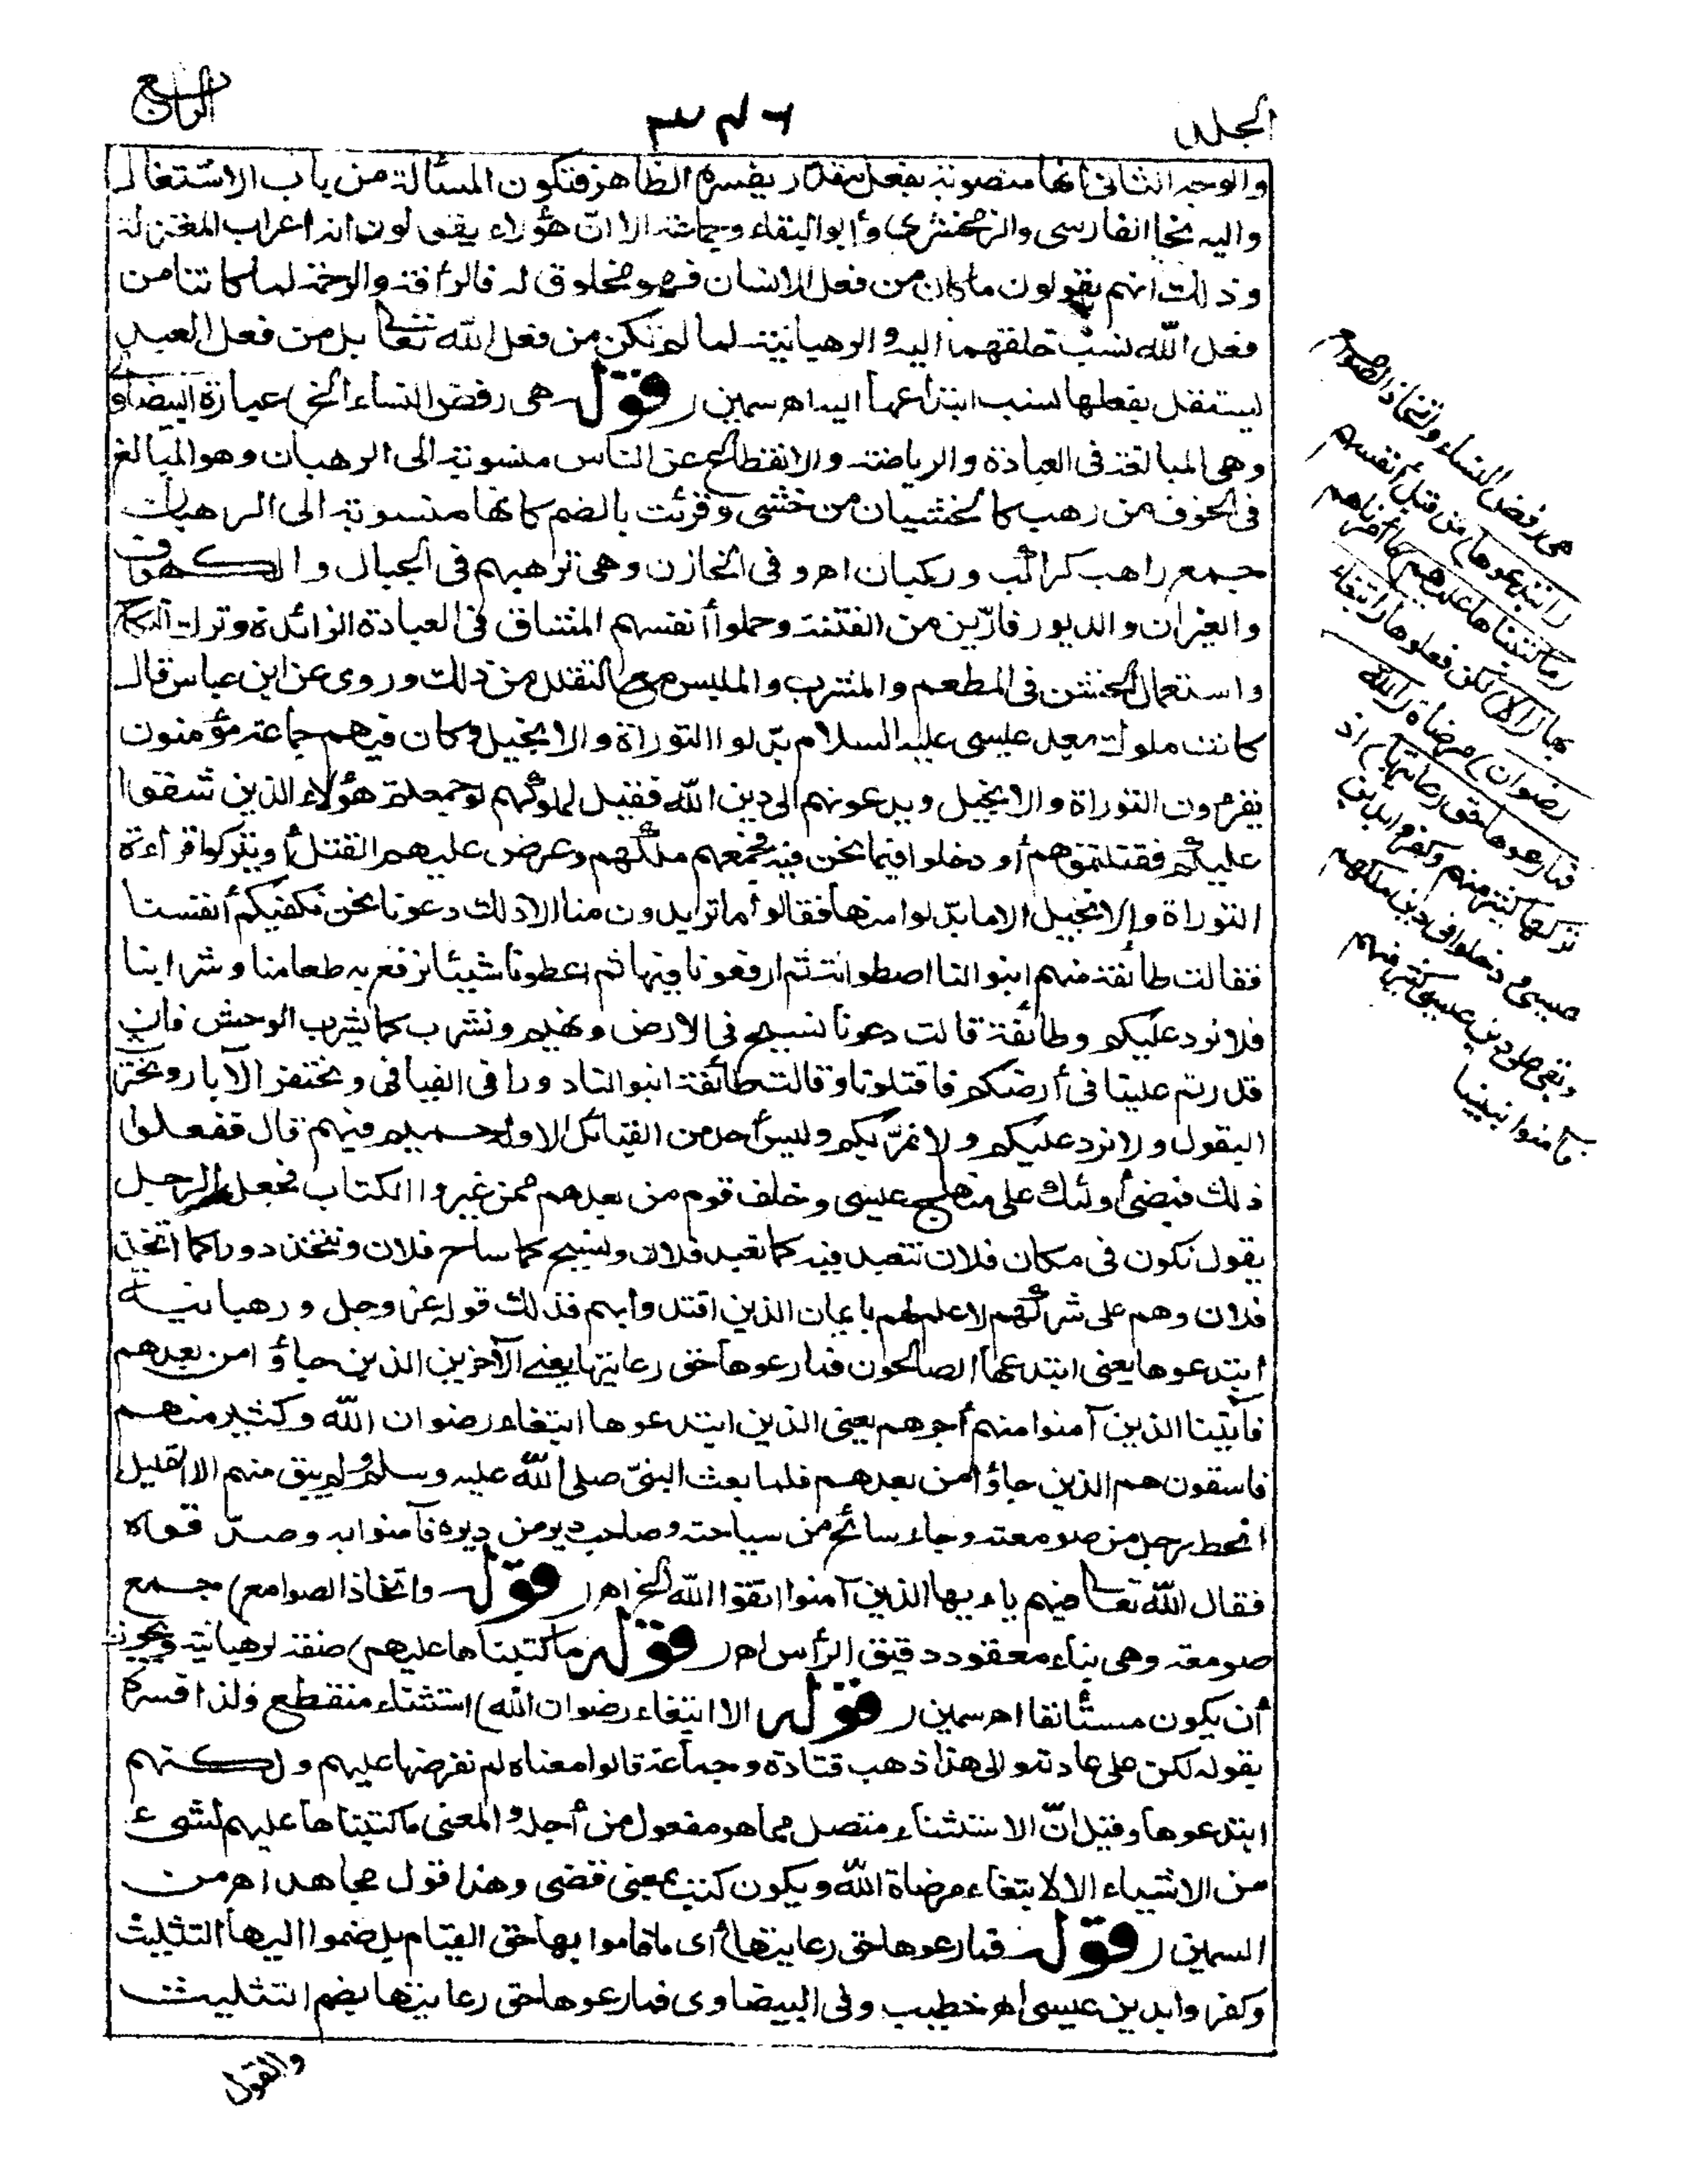 المجلد
٣٨٦
الرابع
والوجه الثاني أنها منصوبة بفعل مقدّر يفسره الظاهر فتكون المسألة من باب الاشتغال
واليه نحا الفارسي والزمخشري وأبو البقاء وجماعة الا انّ هؤلاء يقولون انه اعراب المعتزلة
وذلك انهم يقولون ما كان من فعل الانسان فهو مخلوق له فالرأفة والرحمة لما كانتا من
فعل الله نسب خلقهما اليه والرهبانية لما لم تكن من فعل الله تعالى بل من فعل العبد
يستقل بفعلها نسب ابتداعها اليه اهـ سمين ( قوله هي رفض النساء الخ) عبارة البيضاوي
وهي المبالغة في العبادة والرياضة والانقطاع عن الناس منسوبة الى الرهبان وهو المبالغ
في الخوف من رهب كالخشيان من خشى وقرئت بالضم كانها منسوبة الى الرهبان
جمع راهب كراكب وركبان اهـ وفي الخازن وهي ترهبهم في الجبال والكهوف
والغيران والديور فارّين من الفتنة وحملوا أنفسهم المشاق في العبادة الزائدة وترك النكاح
واستعمال الخشن في المطعم والمشرب والملبس مع التقلل من ذلك وروى عن ابن عباس قال
كانت ملوك بعد عيسى عليه السلام بدّلوا التوراة والانجيل وكان فيهم جماعة مؤمنون
يقرءون التوراة والانجيل ويدعونهم الى دين الله فقيل لملوكهم لو جمعتم هؤلاء الذين شقوا
عليكم فقتلتموهم أو دخلوا فيما نحن فيه فجمعهم ملكهم وعرض عليهم القتل أو يتركوا قراءة
التوراة والانجيل الا ما بدّلوا منها فقالوا ما تريدون منا الا ذلك دعونا نحن نكفيكم أنفسنا
فقالت طائفة منهم ابنوا لنا اصطوانة ثم ارفعونا فيها ثم اعطونا شيئا نرفع به طعامنا وشرابنا
فلا نرد عليكم وطائفة قالت دعونا نسيح في الارض ونهيم ونشرب كما يشرب الوحش فان
قدرتم علينا في أرضكم فاقتلونا وقالت طائفة ابنوا لنا دورا في الفيافي ونحتفر الآبار ونحترث
البقول ولا نرد عليكم ولا نمرّ بكم وليس أحد من القبائل الا وله حميم فيهم قال ففعلوا
ذلك فمضى أولئك على منهاج عيسى وخلف قوم من بعدهم ممن غيروا الكتاب فجعل الرجل
يقول نكون في مكان فلان نتعبد فيه كما تعبد فلان ونسيح كما ساح فلان ونتخذ دورا كما اتخذ
فلان وهم على شركهم لا علم لهم بايمان الذين اقتدوا بهم فذلك قوله عز وجل ورهبانية
ابتدعوها يعني ابتدعها الصالحون فما رعوها حق رعايتها يعني الآخرين الذين جاؤا من بعدهم
فآتينا الذين آمنوا منهم أجرهم يعني الذين ابتدعوها ابتغاء رضوان الله وكثير منهم
فاسقون هم الذين جاؤا من بعدهم فلما بعث النبيّ صلى الله عليه وسلم ولم يبق منهم الا القليل
انحط رجل من صومعته وجاء سائح من سياحته وصاحب دير من ديره فآمنوا به وصدّقوه
فقال الله تعالى فيهم يا ءيها الذين آمنوا اتقوا الله الخ اهـ ( قوله واتخاذ الصوامع) جمع
صومعة وهي بناء معقود دقيق الرأس اهـ ( قوله ما كتبناها عليهم) صفة لرهبانية ويجوز
أن يكون مستأنفا اهـ سمين ( قوله الا ابتغاء رضوان الله) استثناء منقطع ولذا فسره
بقوله لكن على عادته والى هذا ذهب قتادة وجماعة قالوا معناه لم نفرضها عليهم ولكنهم
ابتدعوها وقيل انّ الاستثناء متصل مما هو مفعول من أجله والمعنى ما كتبناها عليهم لشيء
من الاشياء الا لابتغاء مرضاة الله ويكون كتب بمعنى قضى وهذا قول مجاهد اهـ من
السمين ( قوله فما رعوها حق رعايتها) أي ما قاموا بها حق القيام بل ضموا اليها التثليث
وكفروا بدين عيسى اهـ خطيب وفي البيضاوي فما رعوها حق رعايتها بضم التثليث
والقول
هي رفض النساء واتخاذ الصوامع
(ابتدعوها) من قبل أنفسهم
(ما كتبناها عليهم) ما أمرناهم
بها (الا) لكن فعلوها (ابتغاء
رضوان) مرضاة (الله
فما رعوها حق رعايتها) اذ
تركها كثير منهم وكفروا بدين
عيسى ودخلوا في دين ملكهم
وبقي على دين عيسى كثير منهم
فآمنوا بنبينا